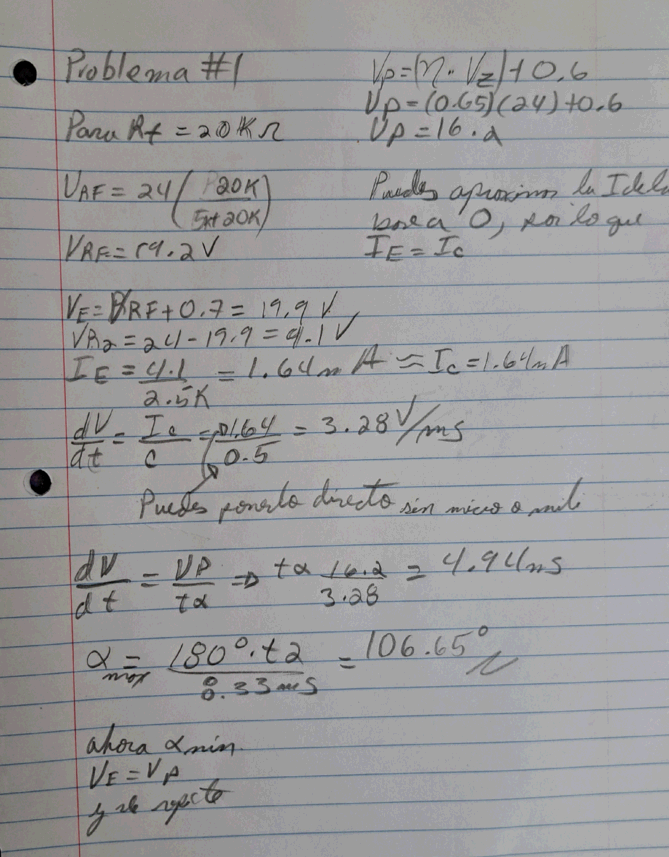 Problema #1
Para Rf = 20KΩ
VRF = 24 (20K / 5K+20K)
VRF = 19.2 V
Vp = (η · Vz) + 0.6
Vp = (0.65)(24) + 0.6
Vp = 16.2
Puedes aproximar la I de la
base a 0, por lo que
IE = Ic
VE = VRF + 0.7 = 19.9 V
VR2 = 24 - 19.9 = 4.1 V
IE = 4.1 / 2.5K = 1.64m A ≈ Ic = 1.64mA
dV/dt = Ic/c = 1.64/0.5 = 3.28 V/ms
Puedes ponerlo directo sin micro o mili
dV/dt = Vp/tα ⇒ tα 16.2/3.28 = 4.94ms
α max = 180° · tα / 8.33ms = 106.65°
ahora α min
VE = Vp
y se repite